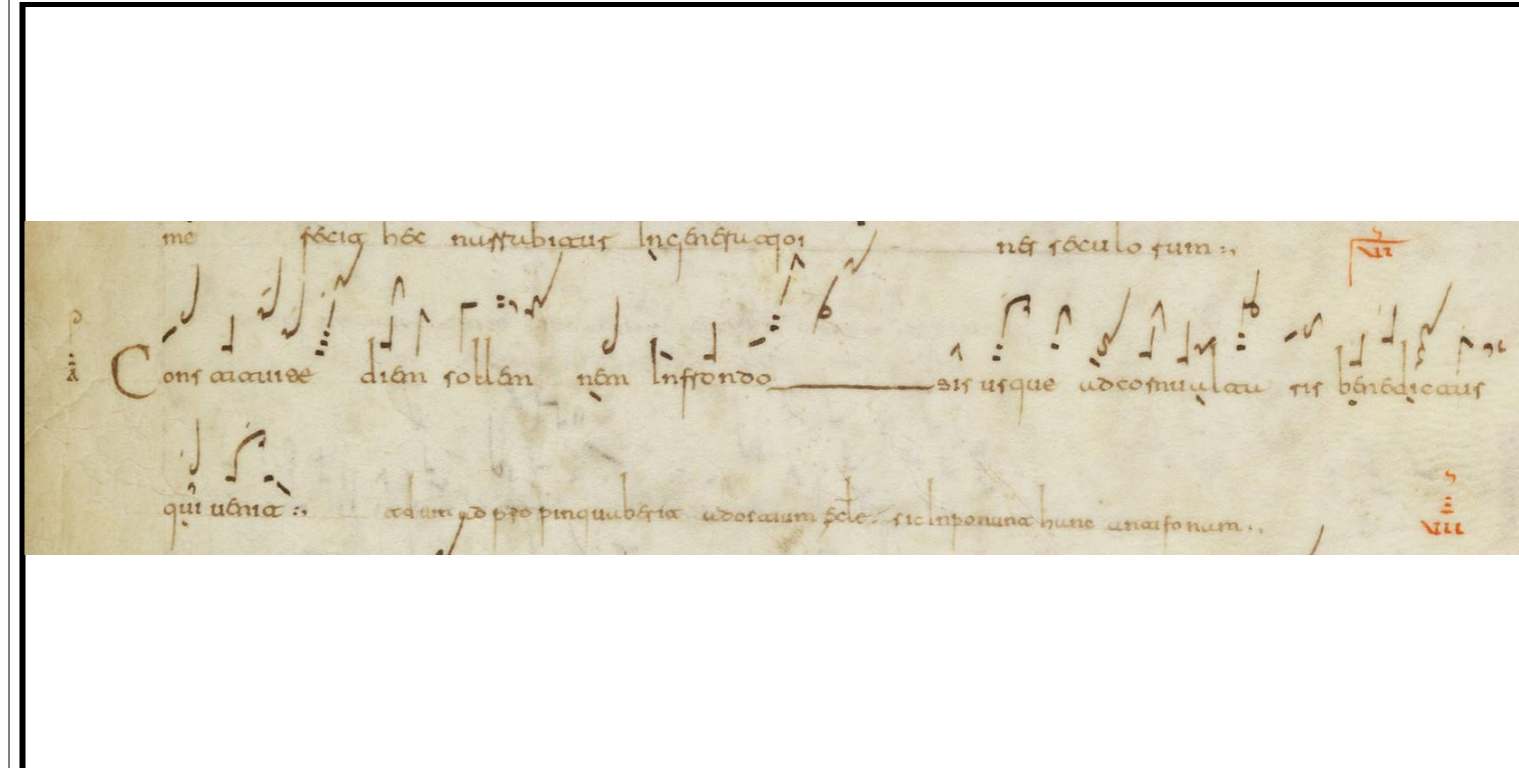 me fecit hec In generatjo nes seculorum VII
Constituite diem sollem nem Infrondo sis usque adcornu altaris benedictus
qui uenit adpropinquaberit adostium ecle sic Inponunt hunc antifonam VIII